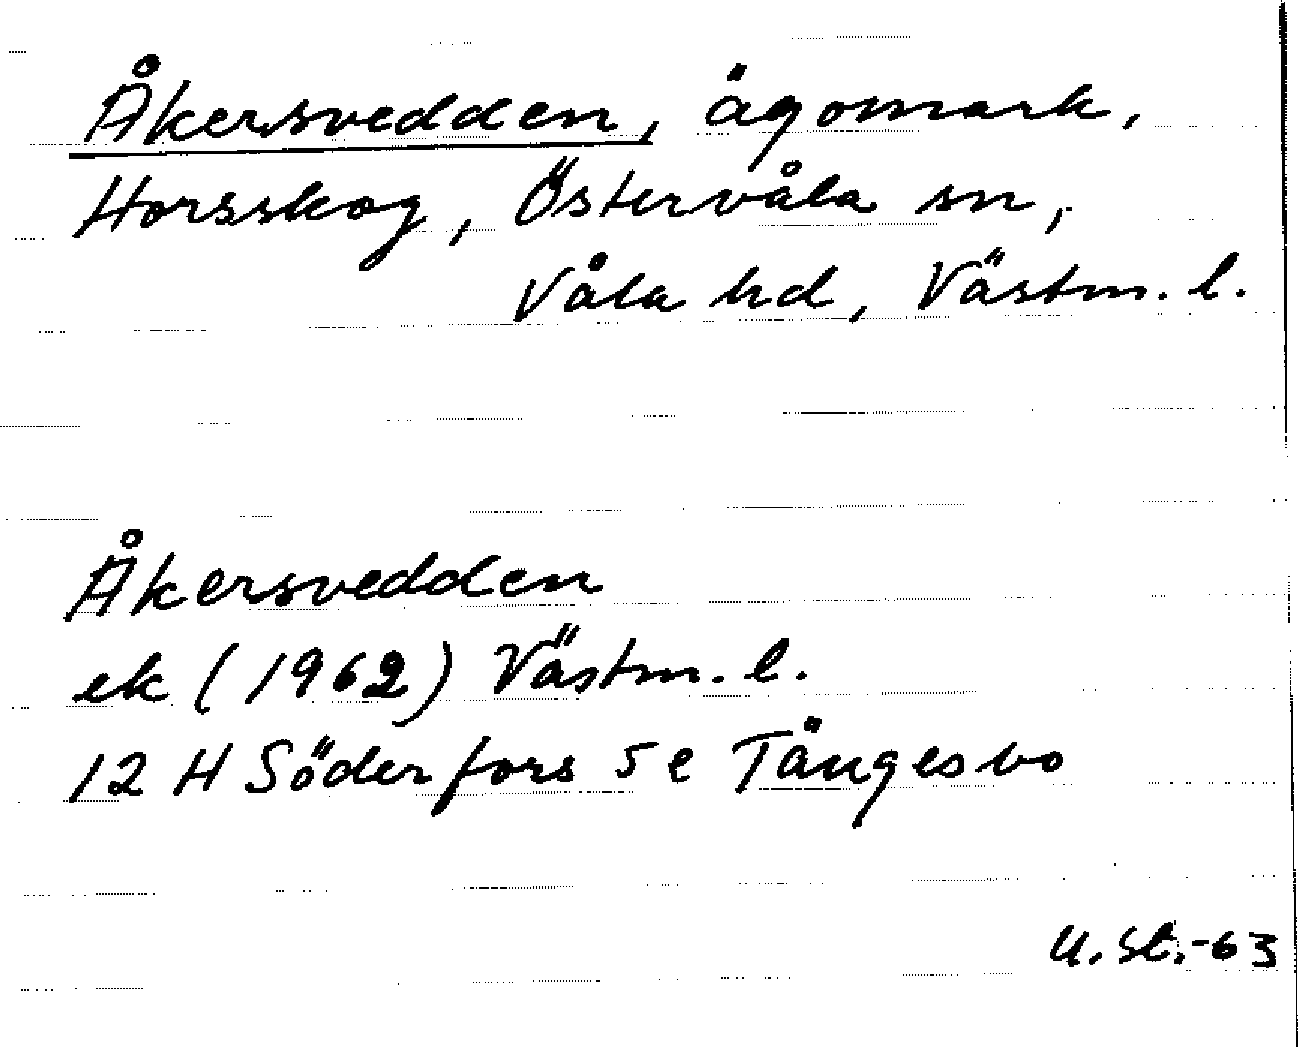 Åkersvedden, ägomark,
Horsskog, Östervåla sn,
Våla hd, Västm. l.
Åkersvedden
ek (1962) Västm. l.
12 H Söderfors 5 e Tängesbo
U. St. -63